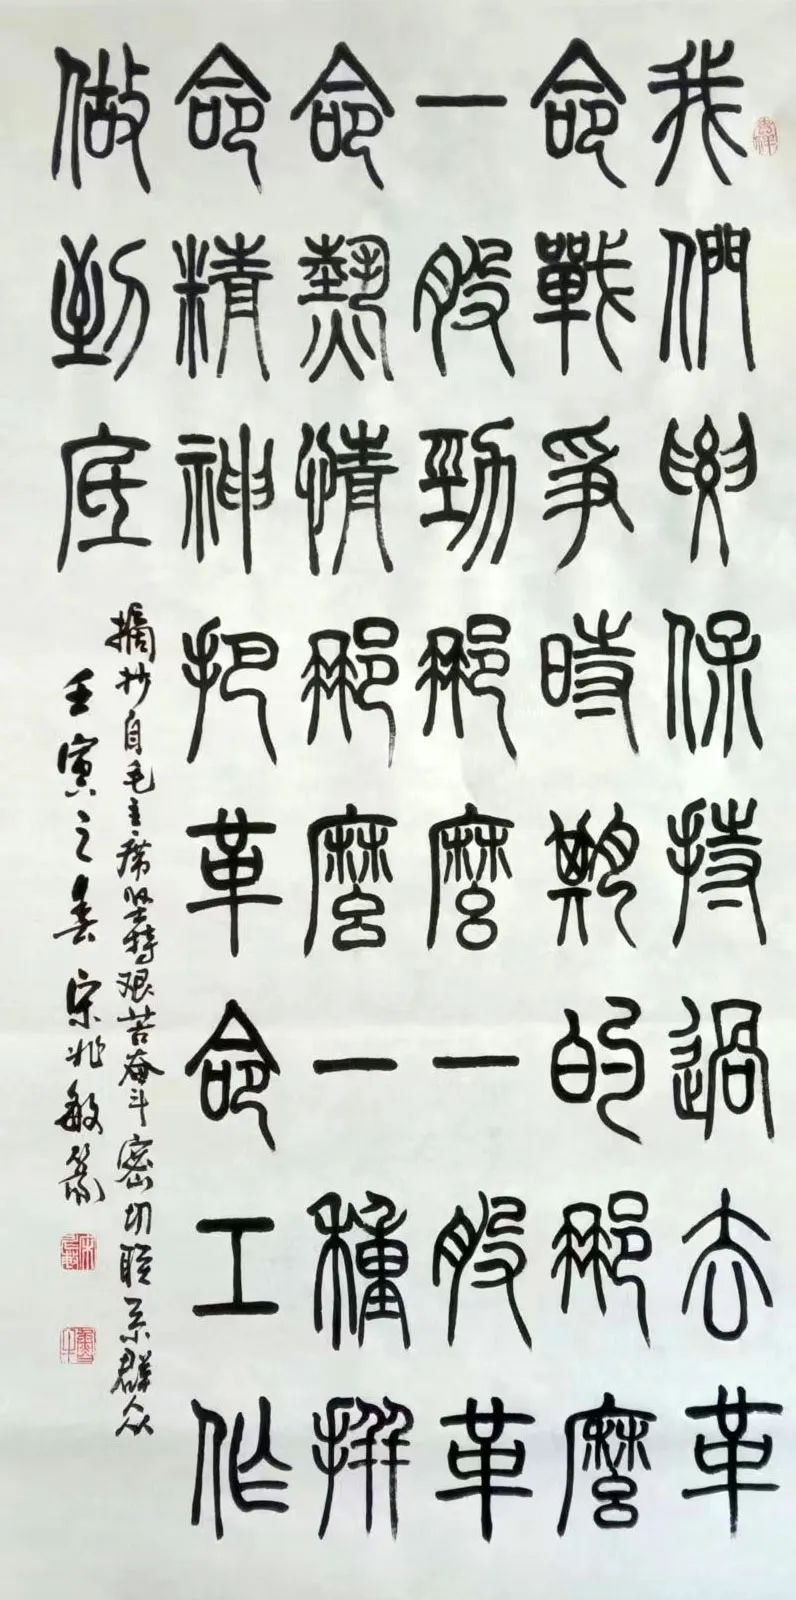 我們要保持過去革
命戰爭時期的那麼
一股勁那麼一股革
命熱情那麼一種拼
命精神把革命工作
做到底
摘抄自毛主席坚持艰苦奋斗密切联系群众
壬寅之春宋兆敏篆